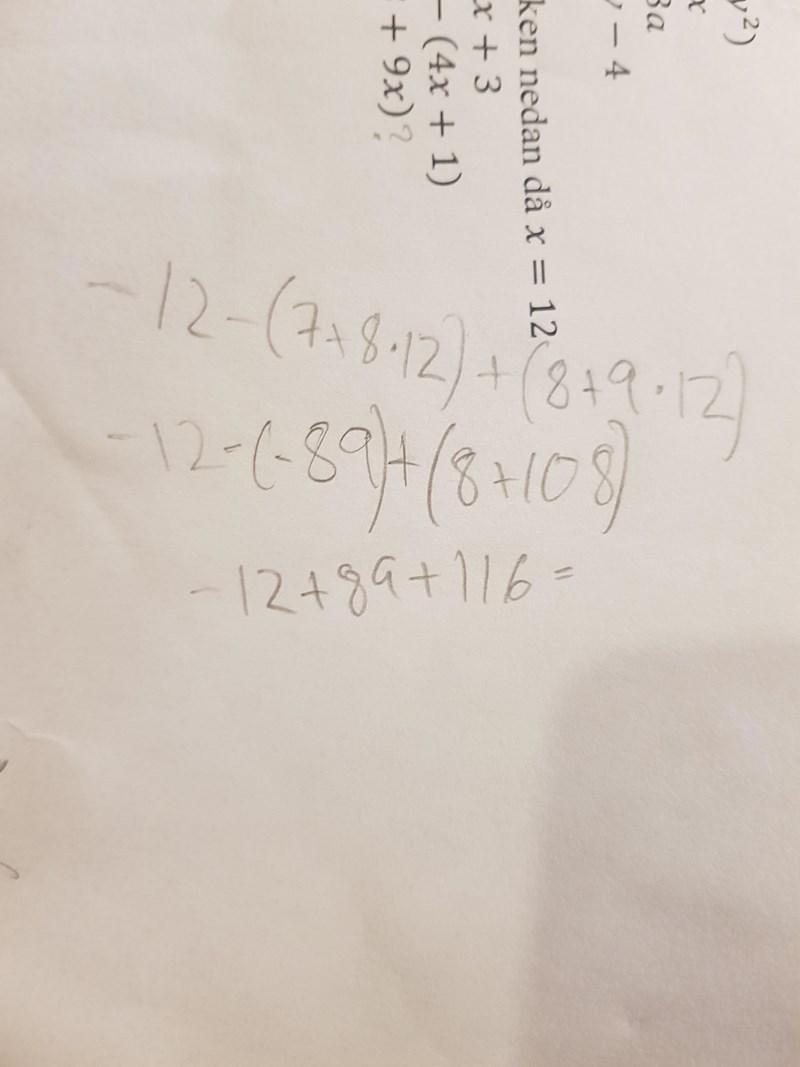 y²)
x
3a
y − 4
ken nedan då x = 12
x + 3
− (4x + 1)
+ 9x)?
-12-(7+8·12)+(8+9·12)
-12-(-89)+(8+108)
-12+89+116=